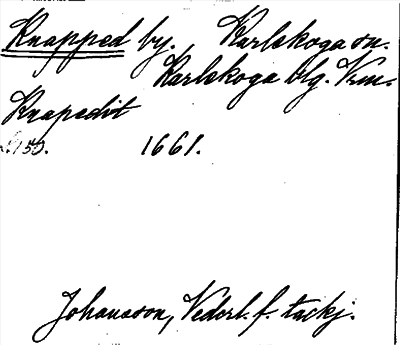 Knapped by. Karlskoga sn.
Karlskoga blg. Vrm.
Knapedit
s. 150. 1661.
Johansson, Vederl. f. tackj.